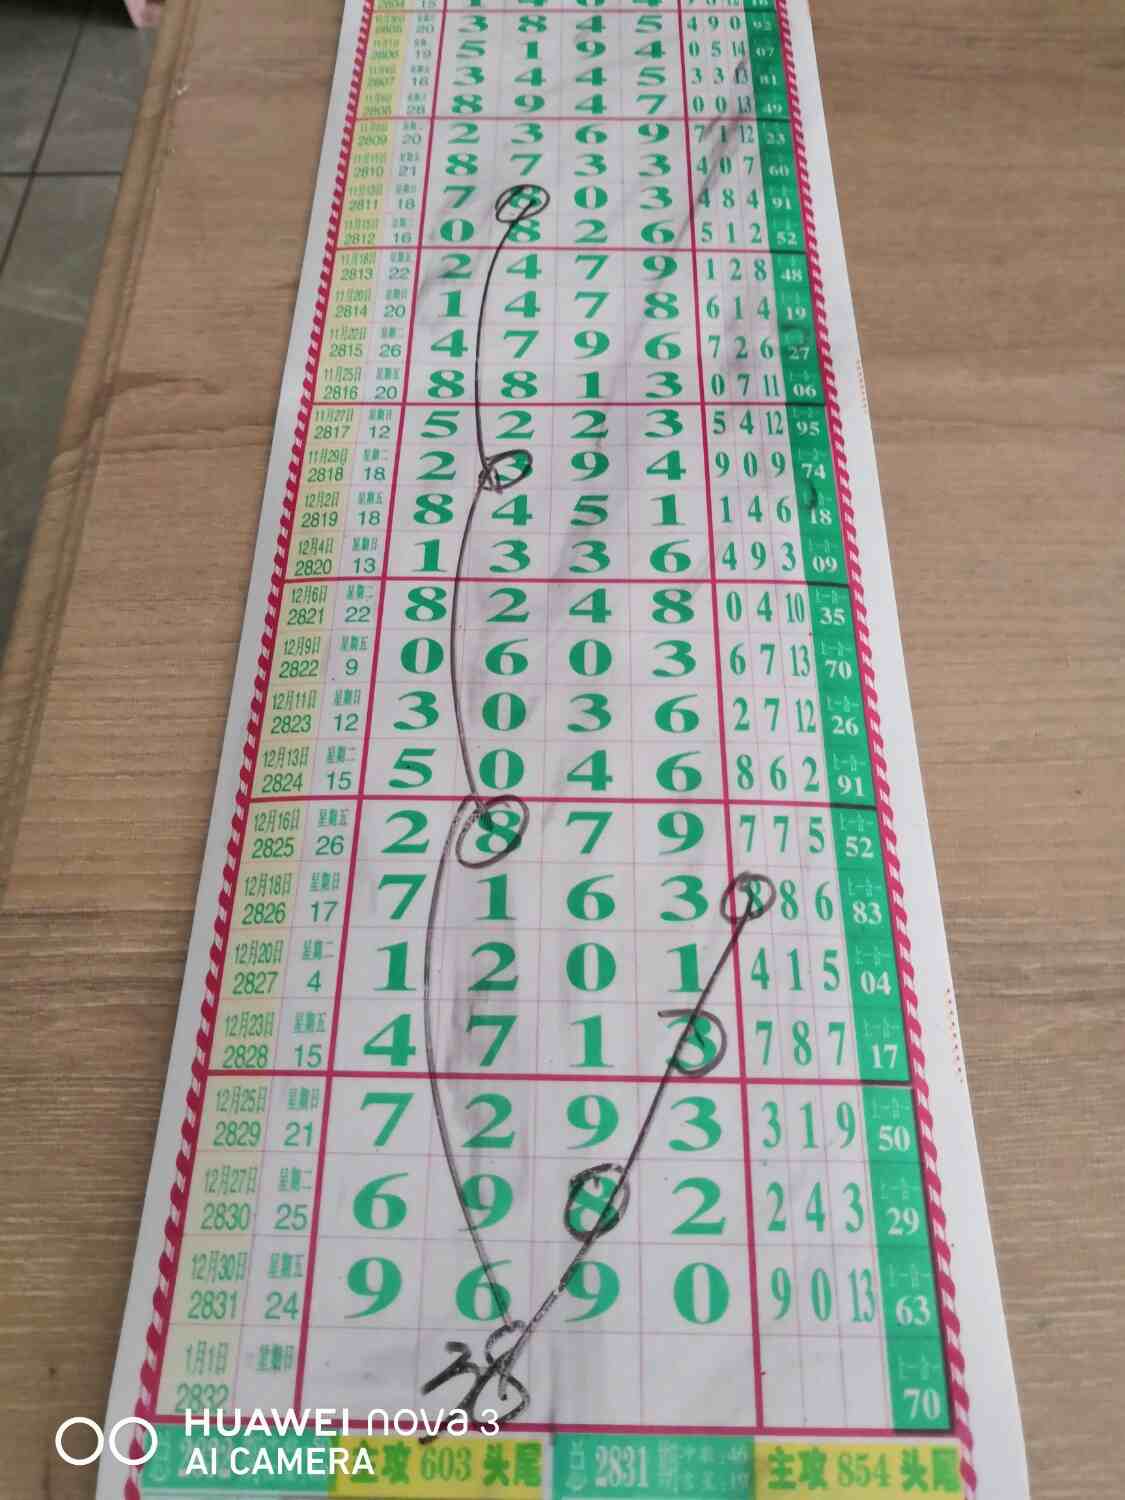 2805 20 3 8 4 5 4 9 0 92
2806 19 5 1 9 4 0 5 14 07
2807 16 3 4 4 5 3 3 13 81
2808 28 8 9 4 7 0 0 13 49
2809 20 2 3 6 9 7 1 12 23
11月11日 星期五 2810 21 8 7 3 3 4 0 7 60
11月13日 星期日 2811 18 7 8 0 3 4 8 4 91
11月15日 星期二 2812 16 0 8 2 6 5 1 2 52
11月18日 星期五 2813 22 2 4 7 9 1 2 8 48
11月20日 星期日 2814 20 1 4 7 8 6 1 4 19
11月22日 星期二 2815 26 4 7 9 6 7 2 6 27
11月25日 星期五 2816 20 8 8 1 3 0 7 11 06
11月27日 星期日 2817 12 5 2 2 3 5 4 12 95
11月29日 星期二 2818 18 2 3 9 4 9 0 9 74
12月2日 星期五 2819 18 8 4 5 1 1 4 6 18
12月4日 星期日 2820 13 1 3 3 6 4 9 3 09
12月6日 星期二 2821 22 8 2 4 8 0 4 10 35
12月9日 星期五 2822 9 0 6 0 3 6 7 13 70
12月11日 星期日 2823 12 3 0 3 6 2 7 12 26
12月13日 星期二 2824 15 5 0 4 6 8 6 2 91
12月16日 星期五 2825 26 2 8 7 9 7 7 5 52
12月18日 星期日 2826 17 7 1 6 3 8 8 6 83
12月20日 星期二 2827 4 1 2 0 1 4 1 5 04
12月23日 星期五 2828 15 4 7 1 3 7 8 7 17
12月25日 星期日 2829 21 7 2 9 3 3 1 9 50
12月27日 星期二 2830 25 6 9 8 2 2 4 3 29
12月30日 星期五 2831 24 9 6 9 0 9 0 13 63
1月1日 星期日 2832 38 70
攻 603 头尾 2831 期 主攻 854 头尾
HUAWEI nova 3
AI CAMERA